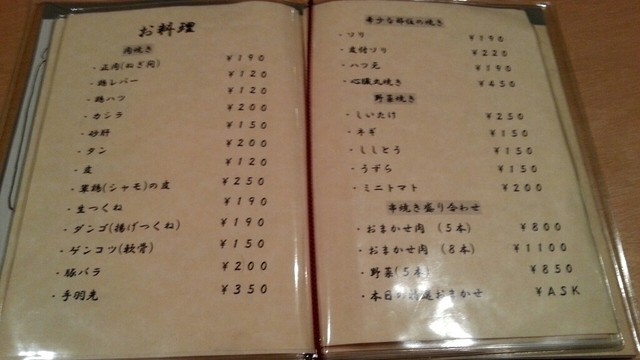 お料理
肉焼き
・正肉(ねぎ肉) ¥190
・鶏レバー ¥120
・鶏ハツ ¥120
・カシラ ¥200
・砂肝 ¥150
・タン ¥200
・皮 ¥120
・軍鶏(シャモ)の皮 ¥250
・生つくね ¥190
・ダンゴ(揚げつくね) ¥190
・ゲンコツ(軟骨) ¥150
・豚バラ ¥200
・手羽先 ¥350
希少な部位の焼き
・ソリ ¥190
・皮付ソリ ¥220
・ハツ元 ¥190
・心臓丸焼き ¥450
野菜焼き
・しいたけ ¥250
・ネギ ¥150
・ししとう ¥150
・うずら ¥150
・ミニトマト ¥200
串焼き盛り合わせ
・おまかせ肉 (5本) ¥800
・おまかせ肉 (8本) ¥1100
・野菜(5本) ¥850
・本日の おまかせ ¥ASK